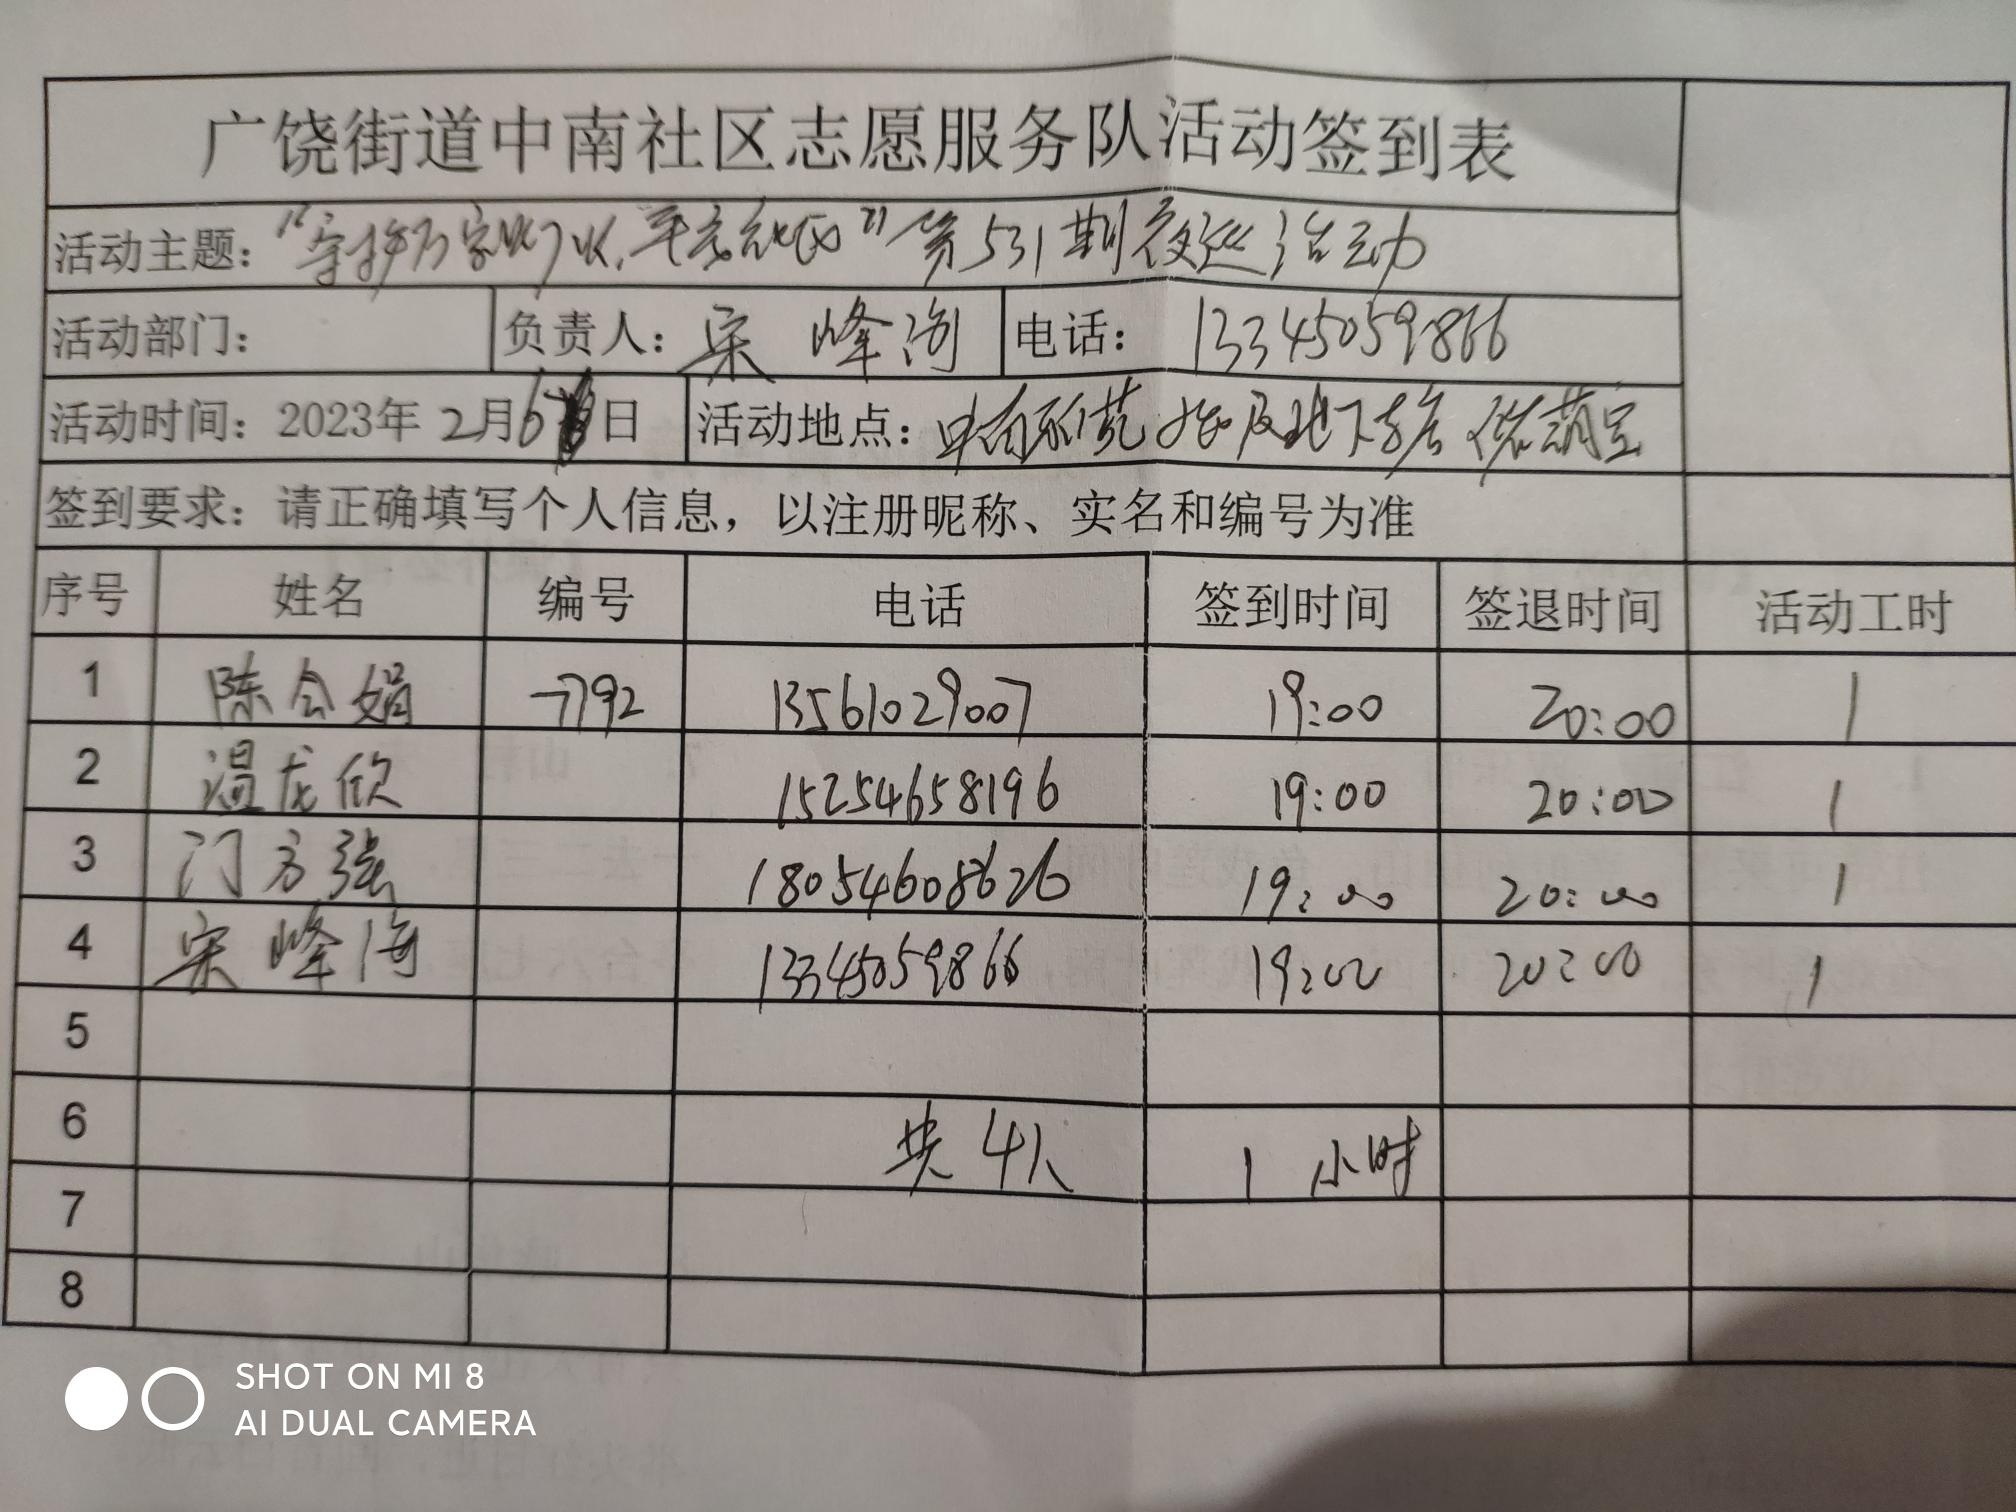 广饶街道中南社区志愿服务队活动签到表
活动主题："守护万家灯火,平安社区"第531期夜巡活动
活动部门： 负责人：宋 峰海 电话：13345059866
活动时间：2023年2月6日 活动地点：中南
签到要求：请正确填写个人信息，以注册昵称、实名和编号为准
序号 姓名 编号 电话 签到时间 签退时间 活动工时
1 陈会娟 7792 13561029007 19:00 20:00 1
2 温龙欣 15254658196 19:00 20:00 1
3 门方强 18054608626 19:00 20:00 1
4 宋峰海 13345059866 19:00 20:00 1
5
6 共4人 1小时
7
8
SHOT ON MI 8
AI DUAL CAMERA